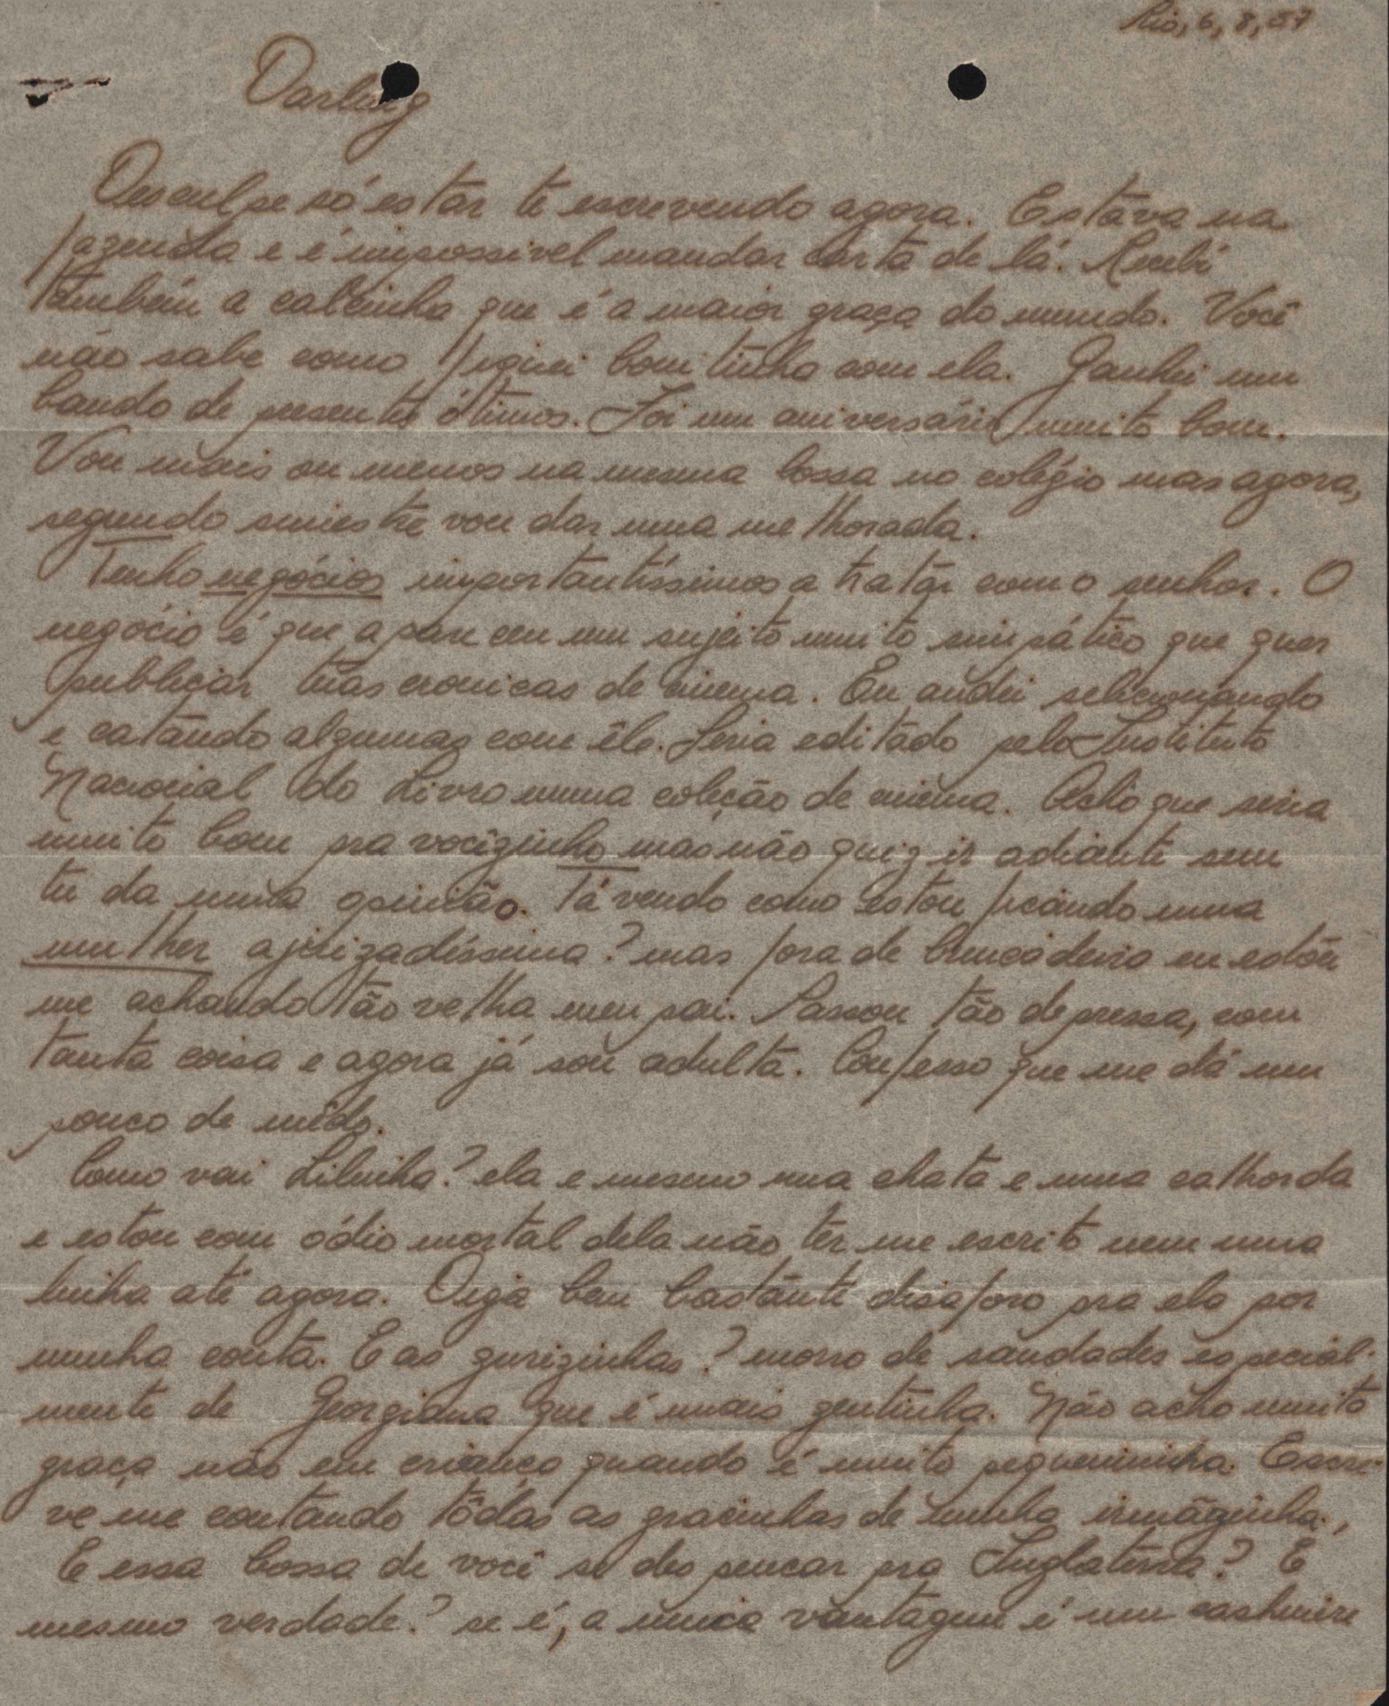 Rio, 6, 8, 57
Darling
Desculpe só estar te escrevendo agora. Estava na
fazenda e é impossivel mandar carta de lá. Recebi
também a calcinha que é a maior graça do mundo. Você
não sabe como fiquei bonitinha com ela. Ganhei um
bando de presentes ótimos. Foi um aniversário muito bom.
Vou mais ou menos na mesma bossa no colégio mas agora,
segundo semestre vou dar uma melhorada.
Tenho negócios importantíssimos a tratar com o senhor. O
negócio é que apareceu um sujeito muito simpático que quer
publicar tuas cronicas de cinema. Eu andei selecionando
e catando algumas com êle. Seria editado pelo Instituto
Nacional do Livro numa coleção de cinema. Acho que seria
muito bom pra vocêzinho mas não quiz ir adiante sem
tu da minha opinião. Tá vendo como estou ficando uma
mulher ajuizadíssima? mas fora de brincadeira eu estou
me achando tão velha meu pai. Passou tão depressa, com
tanta coisa e agora já sou adulta. Confesso que me dá um
pouco de mêdo.
Como vai Lilinha? ela e mesmo uma chata e uma calhorda
e estou com ódio mortal dela não ter me escrito nem uma
linha até agora. Diga bem bastante desaforo pra ela por
minha conta. E as gurizinhas? morro de saudades especial-
mente de Georgiana que é mais gentinha. Não acho muito
graça não em criança quando é muito pequenininha. Escre-
ve me contando tôdas as gracinhas de minha irmãzinha.,
E essa bossa de você se despencar pra Inglaterra? É
mesmo verdade? se é, a unica vantagem é um cashmire